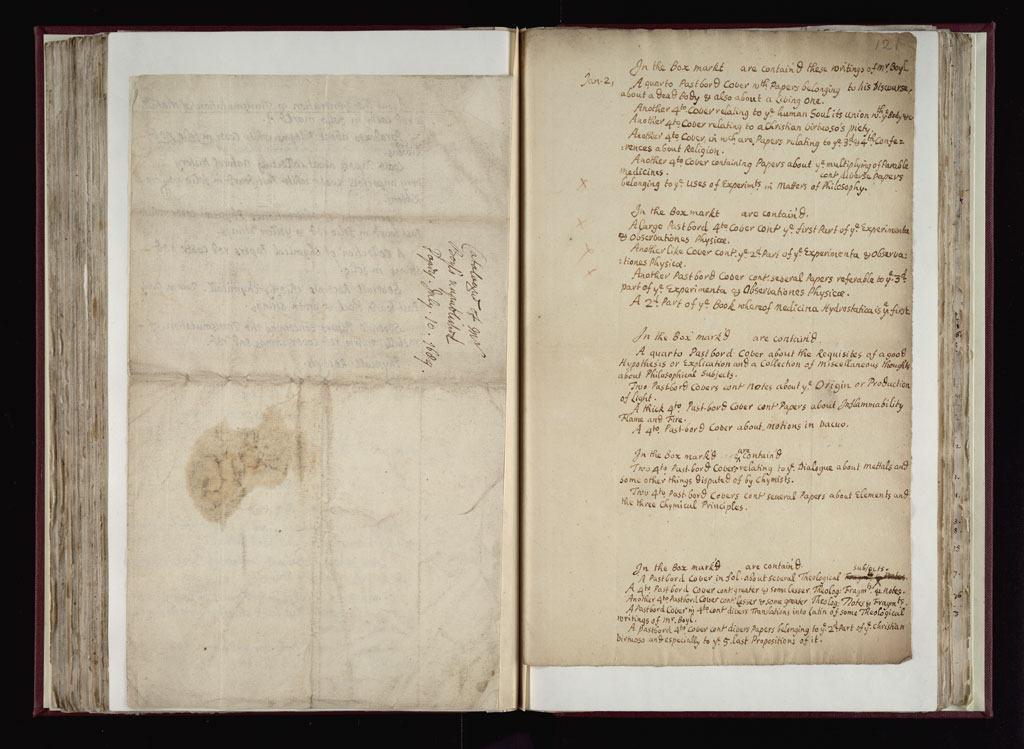 Catalogue of Mr
Boyls unpublished
Papers July. 10. 1689.
121
In the Box markt are contain'd these writings of Mr. Boyl
Jan. 2,
A quarto Pastbord Cover wth Papers belonging to his Discourse,
about a dead Body & also about a Living One.
Another 4to Cover relating to ye human Soul its Union wth ye Body &c
Another 4to Cover relating to a Christian virtuoso's piety.
Another 4to Cover, in wch are Papers relating to ye 3d & 4th Confe=
=rences about Religion.
Another 4to Cover containing Papers about ye multiplying of Parable
medicines. cont diverse Papers
x belonging to ye Uses of Experimts in Matters of Philosophy.
In the Box markt are contain'd.
x A Large Pastbord 4to Cover cont ye first Part of ye Experimenta
& Observationes Physicæ.
x Another Like Cover cont. ye 2d Part of ye Experimenta & Observa=
=tiones Physicæ.
Another Pastbord Cover cont several Papers referable to ye 3d
part of ye Experimenta & Observationes Physicæ.
A 2d Part of ye Book whereof Medicina Hydrostatica is ye first
In the Box mark'd are contain'd.
A quarto Pastbord Cover about the Requisites of a good
Hypothesis or Explication and a Collection of Miscellaneous thoughts
about Philosophical Subjects.
Two Pastbord Covers cont Notes about ye Origin or Production
of Light.
A thick 4to Past-bord Cover cont Papers about Inflammability
Flame and Fire.
A 4to Past-bord Cover about motions in Vacuo.
In the Box mark'd are contain'd
Two 4to Past-bord Covers relating to ye Dialogue about mettals and
some other things disputed of by Chymists.
Two 4to Past bord Covers cont several Papers about Elements and
the three Chymical Principles.
In the Box mark'd are contain'd
A Pastbord Cover in fol. about several Theological subjects.
A 4to Past bord Cover cont greater & some Lesser Theolog: Fragmts & Notes.
Another 4to Pastbord Cover cont Lesser & some greater Theolog: Notes & Fragmts.
A Pastbord Cover in 4to cont divers Translations into Latin of some Theological
writings of Mr. Boyl.
A pastbord 4to Cover cont divers Papers belonging to ye 2d Part of ye Christian
Virtuoso and especially to ye 5 last Propositions of it.